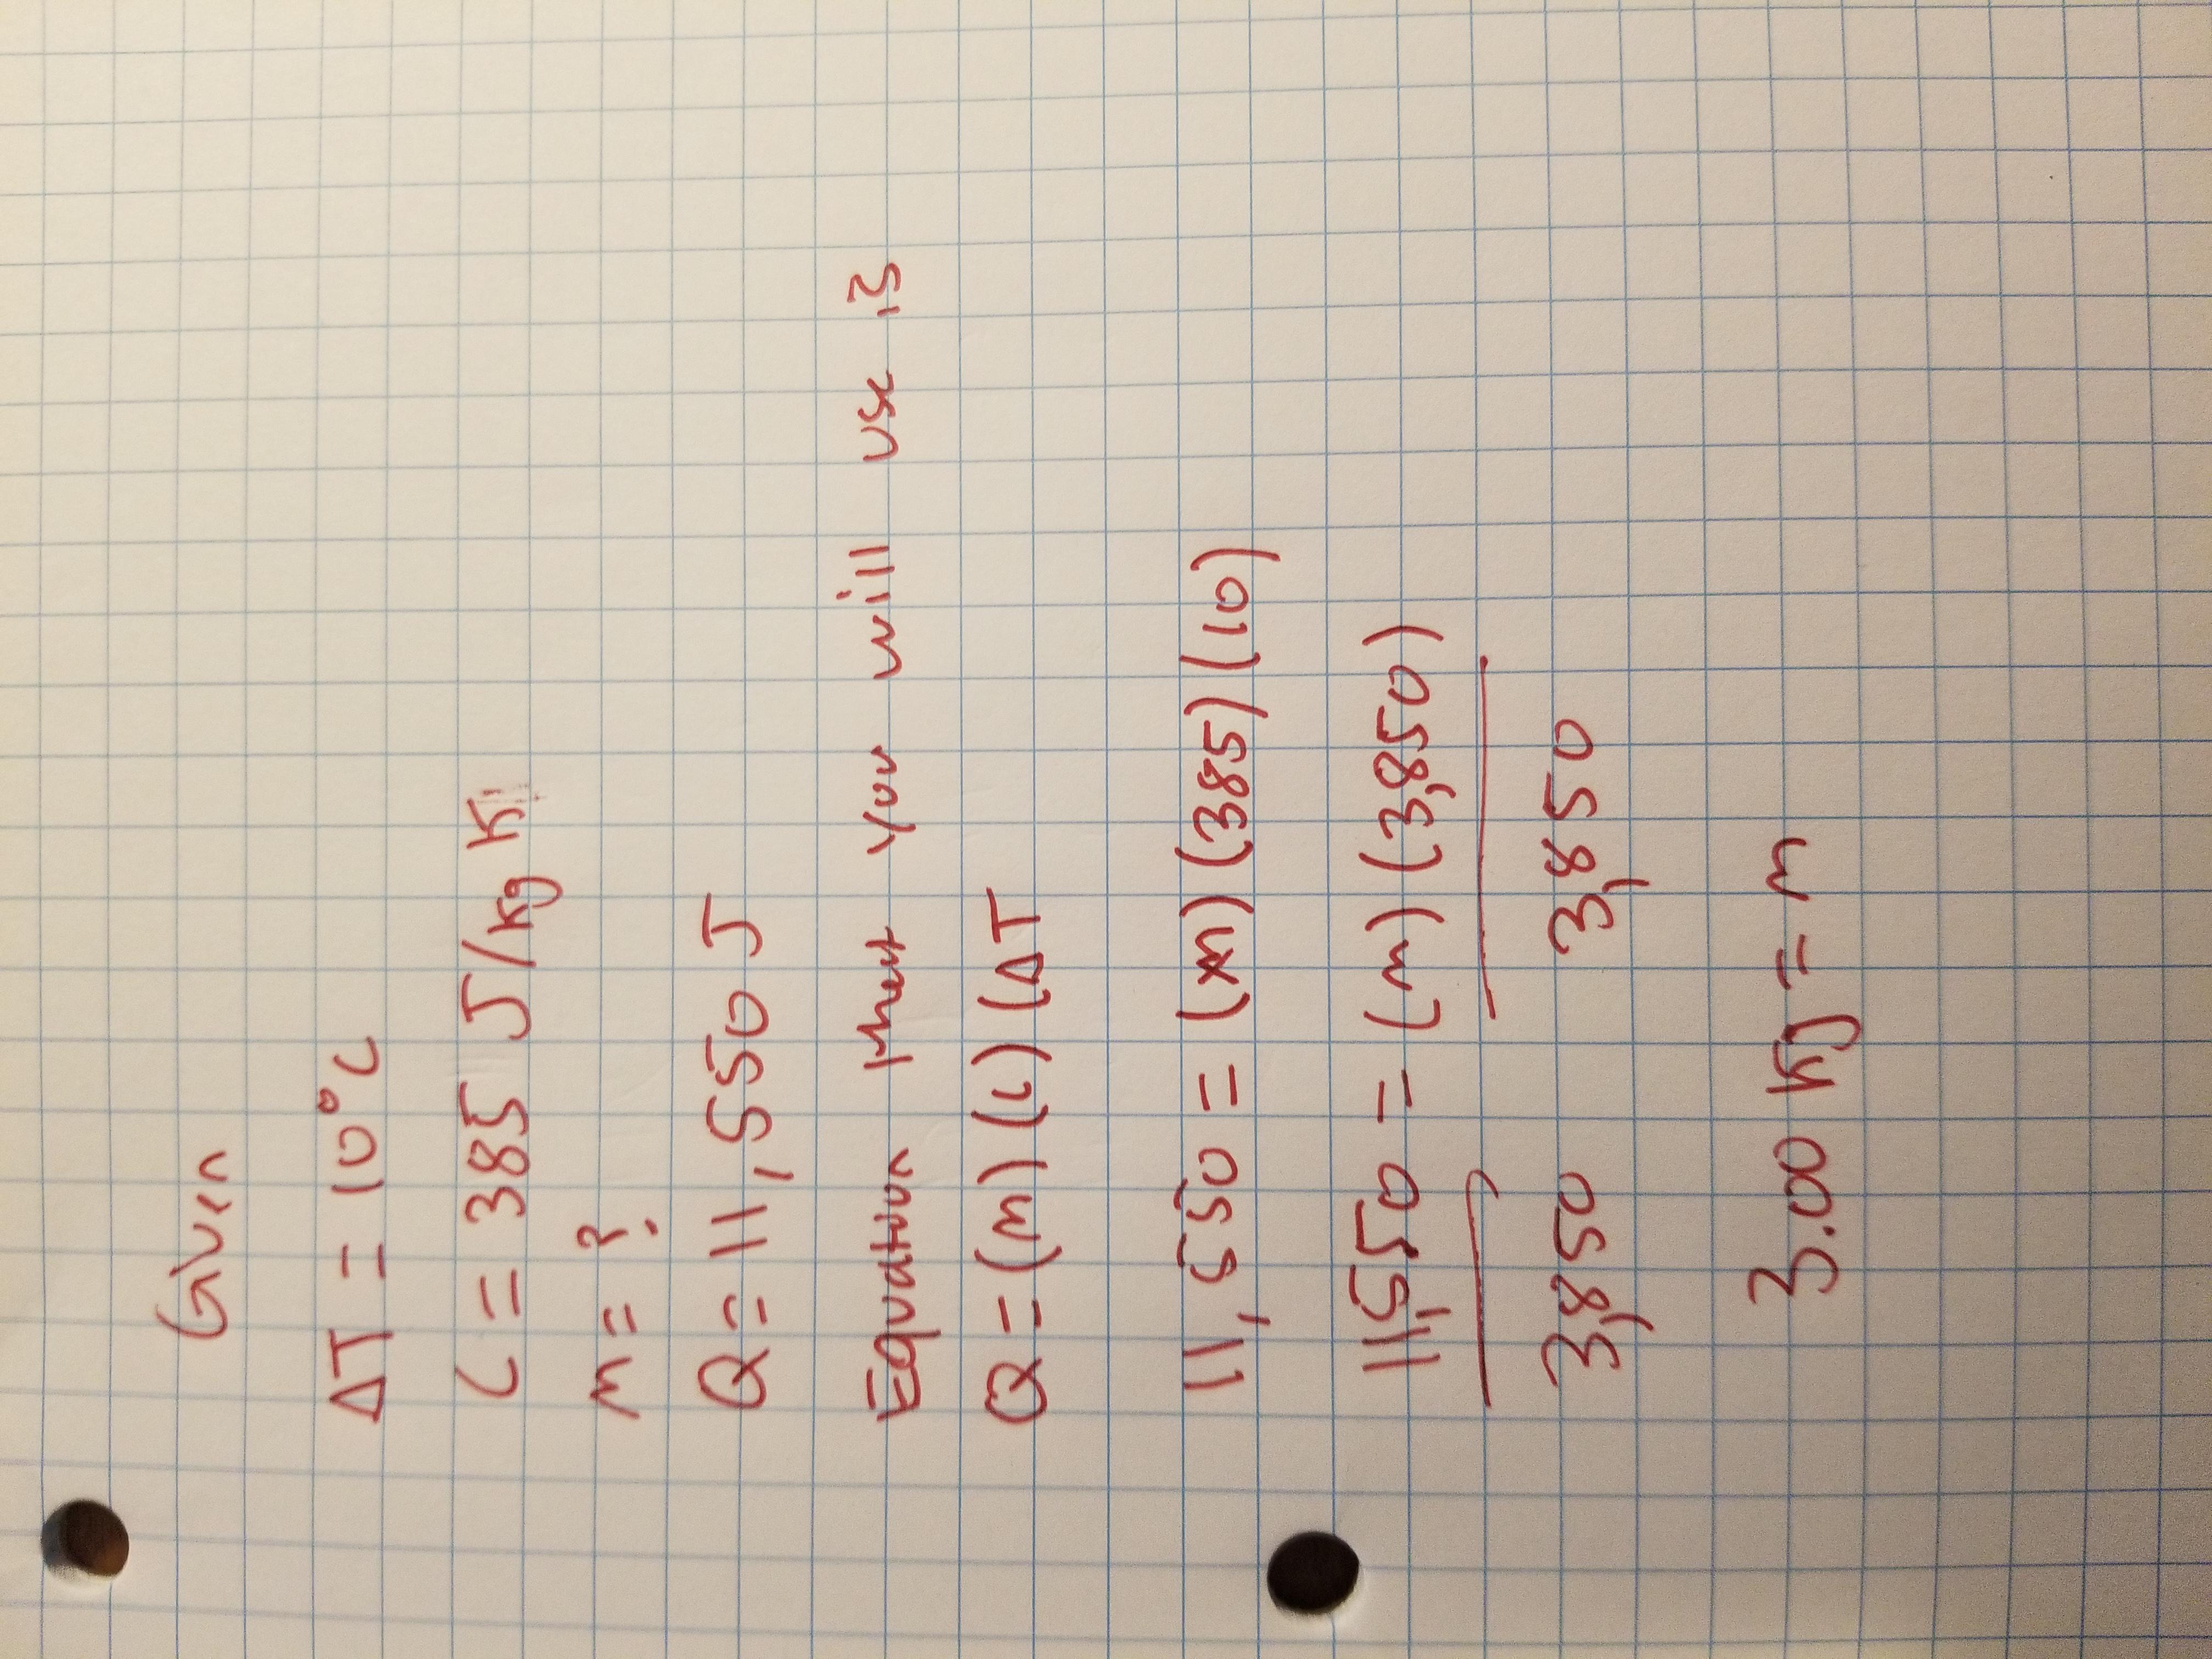 Given
ΔT = 10°C
C = 385 J/kg K
m = ?
Q = 11,550 J
Equation that you will use is
Q = (m) (c) (ΔT
11,550 = (m) (385) (10)
11,550 = (m) (3,850)
3,850 3,850
3.00 kg = m